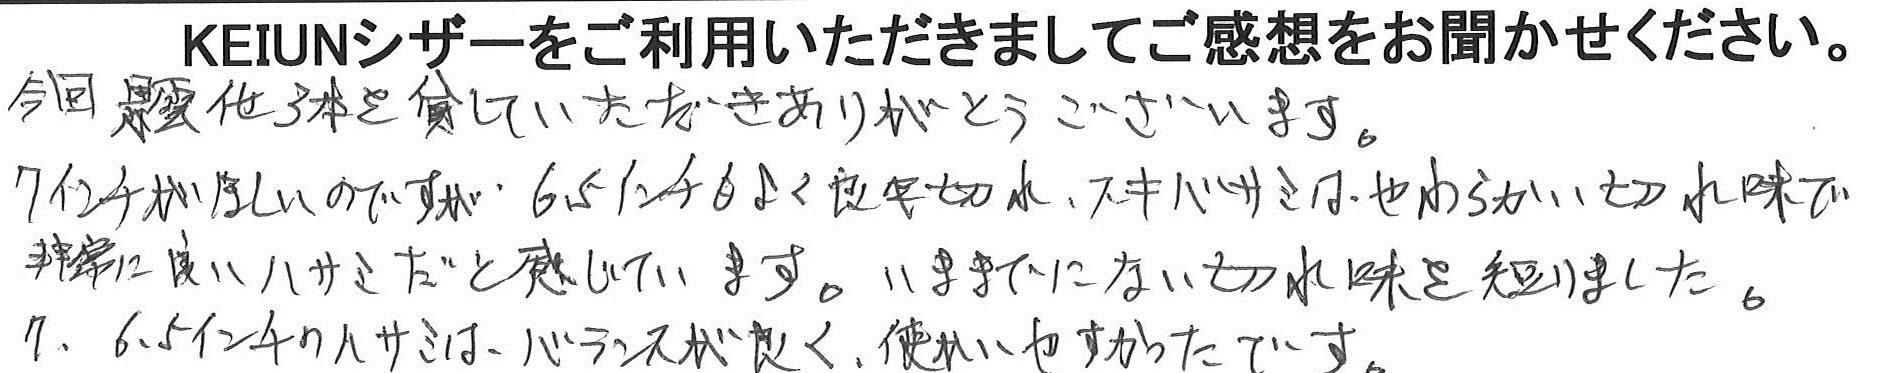 KEIUNシザーをご利用いただきましてご感想をお聞かせください。
今回 景雲 他3本を貸していただきありがとうございます。
7インチがほしいのですが、6.5インチもよく切れ、スキバサミは、やわらかい切れ味で
非常に良いハサミだと感じています。いままでにない切れ味を知りました。
7、6.5インチのハサミは、バランスが良く、使いやすかったです。